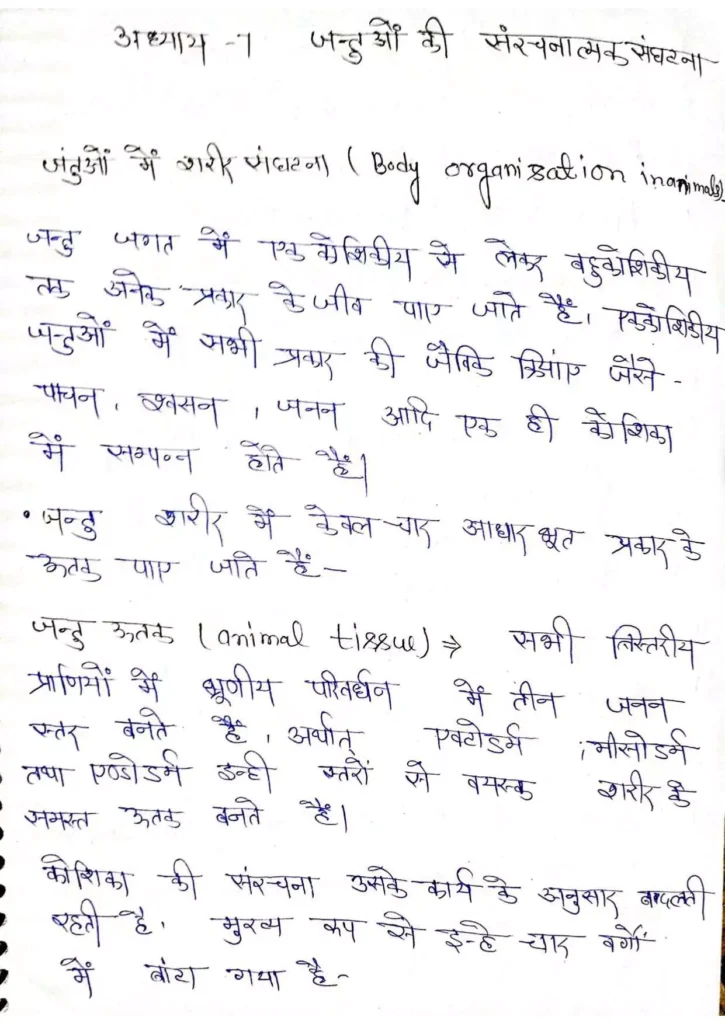 अध्याय -7 जन्तुओं की संरचनात्मक संघटना
जंतुओं में शरीर संघटना ( Body organisation in animals)
जन्तु जगत में एक कोशिकीय से लेकर बहुकोशिकीय
तक अनेक प्रकार के जीव पाए जाते हैं, एककोशिकीय
जन्तुओं में सभी प्रकार की जैविक क्रियाएं जैसे -
पाचन, श्वसन, जनन आदि एक ही कोशिका
में सम्पन्न होते हैं।
• जन्तु शरीर में केवल चार आधार भूत प्रकार के
ऊतक पाए जाते हैं:-
जन्तु ऊतक (animal tissue) ⇒ सभी त्रिस्तरीय
प्राणियों में भ्रूणीय परिवर्धन में तीन जनन
स्तर बनते हैं, अर्थात् एक्टोडर्म, मीसोडर्म
तथा एण्डोडर्म इन्ही स्तरों से वयस्क शरीर के
समस्त ऊतक बनते हैं।
कोशिका की संरचना उसके कार्य के अनुसार बादलती
रहती है, मुख्य रूप से इन्हे चार वर्गों
में बांटा गया है-